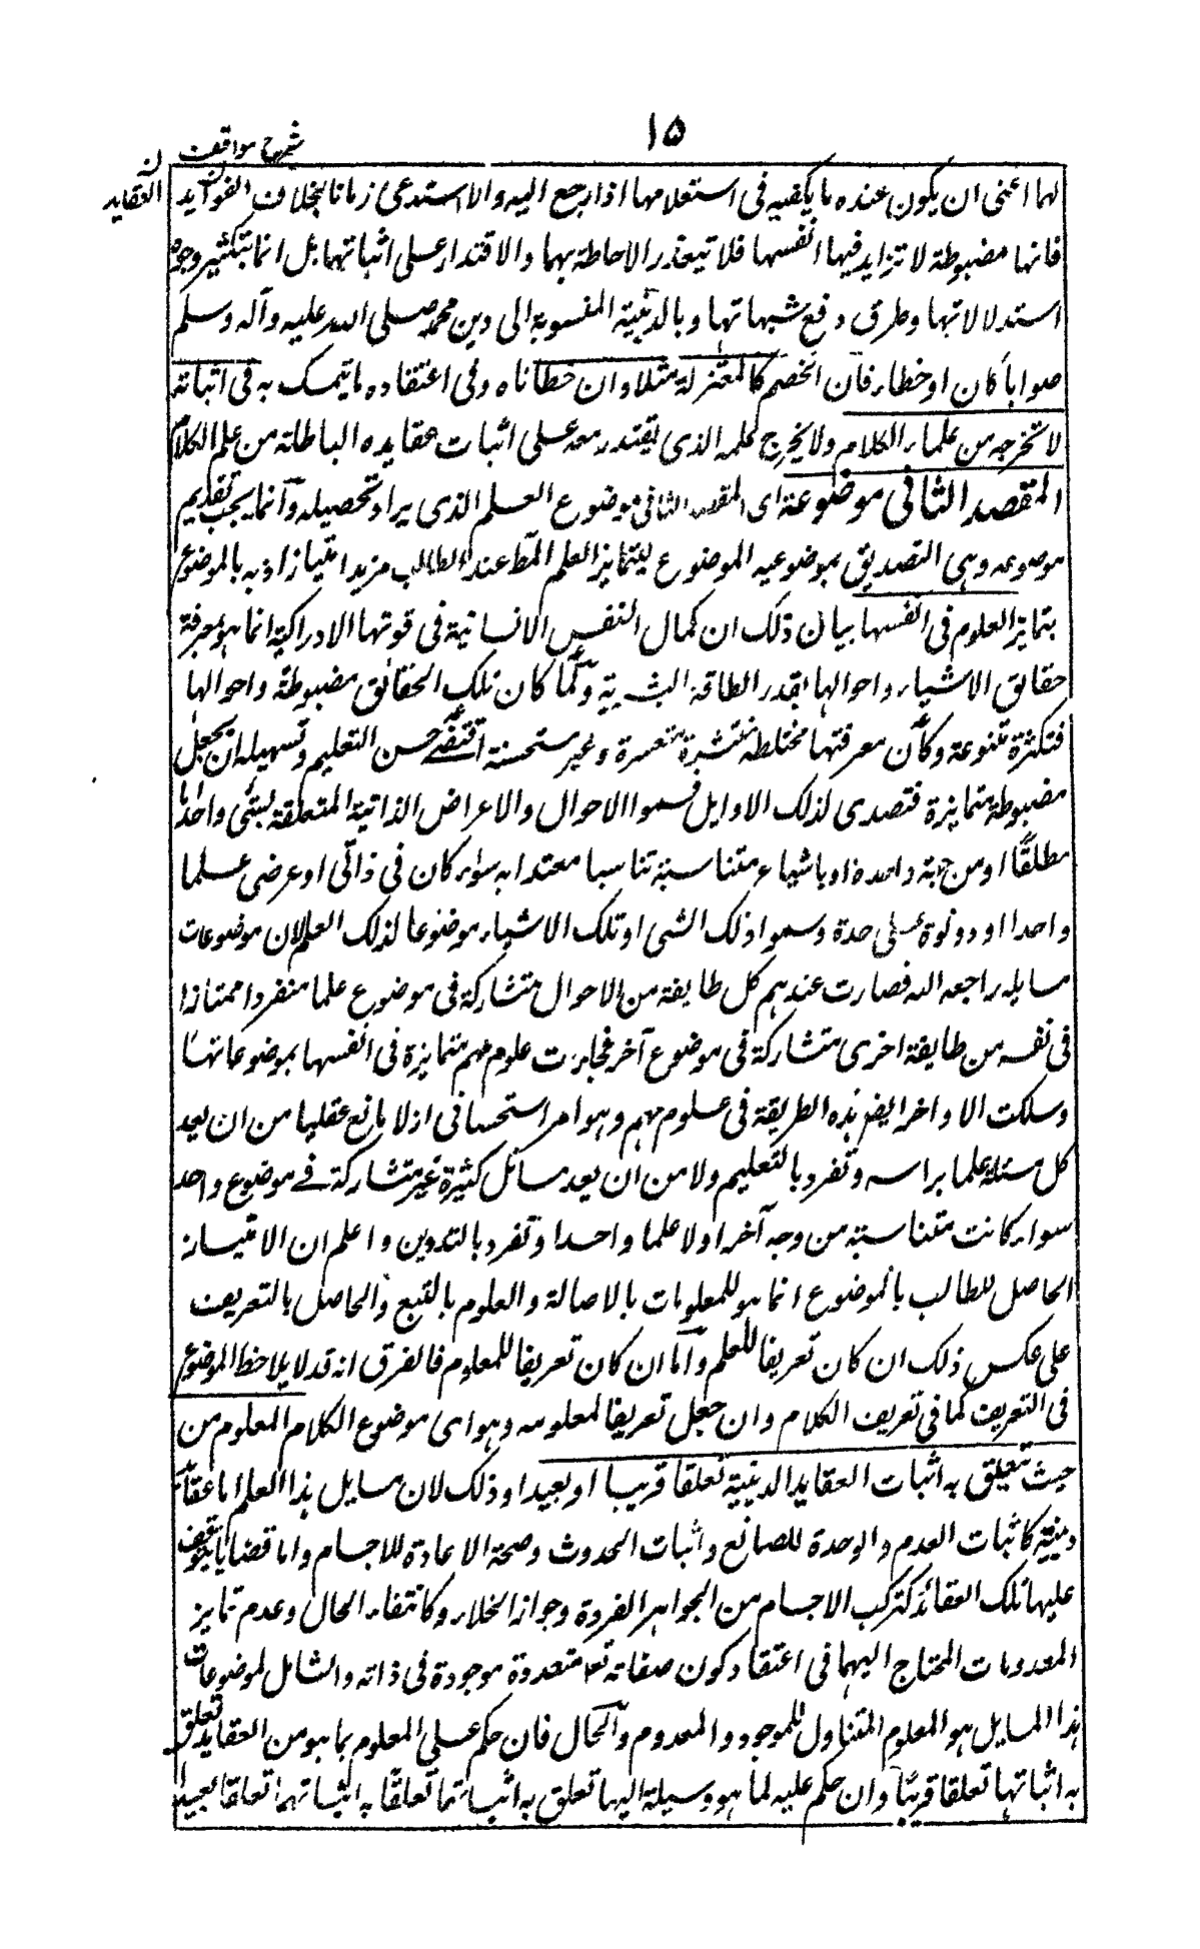 ١٥
شرح مواقف
ن العقايد
لها اعنى ان يكون عنده ما يكفيه فى استعلامها اذا رجع اليه والاستدعى زمانا بخلاف الفوايد
فانها مضبوطة لا تزايد فيها انفسها فلا تيعذر الاحاطة بهما والاقتدار على اثباتها بل انما بتكثير وجوه
استدلالاتها وطرق دفع شبهاتها وبالدينية المنسوبة الى دين محمد صلى الله عليه وآله وسلم
صوابا كان او خطاء فان الخصم كالمعتزلة مثلا وان خطأناه وفى اعتقاده ما يتمسك به فى اثباته
لا تخرجه من علماء الكلام ولا يخرج علمه الذى يقتدر معه على اثبات عقايده الباطلة من علم الكلام
المقصد الثانى موضوعة اى المقصد الثانى موضوع العلم الذى يراد تحصيله وانما يجب تقديم
موضوعه وهى التصديق بموضوعيه الموضوع ليتمايز العلم المط عند الطالب مزيد امتياز اذ به بالموضوع
يتمايز العلوم فى انفسها بيان ذلك ان كمال النفس الانسانية فى قوتها الادراكية انما هو بمعرفة
حقايق الاشياء واحوالها بقدر الطاقة البشرية ولما كان تلك الحقائق مضبوطة واحوالها
فتكثرة متنوعة وكان معرفتها مختلطة منتشرة متعسرة وغير مستحسنة اقتضى حسن التعليم وتسهيله ان يجعل
مضبوطة متمايزة فتصدى لذلك الاوايل فسموا الاحوال والاعراض الذاتية المتعلقة بشئ واحد اما
مطلقا او من جهة واحدة او باشياء متناسبة تناسبا معتدا به سواء كان فى ذاتى او عرضى علما
واحدا او دونوة على حدة وسموا ذلك الشى او تلك الاشياء موضوعا لذلك العلم لان موضوعات
مسايله راجعه اليه فصارت عندهم كل طايفة من الاحوال متشاركة فى موضوع علما منفردا ممتازا
فى نفسه من طايفة اخرى متشاركة فى موضوع آخر فجاءت علومهم متمايزة فى انفسها بموضوعاتها
وسلكت الاواخر ايضو هذه الطريقة فى علومهم وهو امر استحسانى اذ لا مانع عقليا من ان يعد
كل مسئلة علما براسه وتفرد بالتعليم ولا من ان يعد مسائل كثيرة غير متشاركة فى موضوع واحد
سواء كانت متناسبته من وجه آخر اولا علما واحدا وتفرد بالتدوين واعلم ان الامتياز
الحاصل للطالب بالموضوع انما هو للمعلومات بالاصالة والعلوم بالتبع والحاصل بالتعريف
على عكس ذلك ان كان تعريفا للعلم واما ان كان تعريفا للمعلوم فالفرق انه قد لا يلاحظ الموضوع
فى التعريف كما فى تعريف الكلام وان جعل تعريفا لمعلومه وهو اى موضوع الكلام المعلوم من
حيث تتعلق به اثبات العقايد الدينية تعلقا قريبا او بعيدا وذلك لان مسايل هذا العلم اما عقائد
دينية كاثبات القدم والوحدة للصانع واثبات الحدوث وصحة الاعادة للاجسام واما قضايا يتوقف
عليها تلك العقائد كتركب الاجسام من الجواهر الفردة وجواز الخلاء وكانتفاء الحال وعدم تمايز
المعدومات المحتاج اليهما فى اعتقاد كون صفاته تعم متعددة موجودة فى ذاته والشامل لموضوعات
هذا المسايل هو المعلوم المتناول للموجود والمعدوم والحال فان حكم على المعلوم بما هو من العقايد تعلق
به اثباتها تعلقا قريبا وان حكم عليه لما هو وسيلة اليها تعلق به اثباتها تعلقا به اثباتها تعلقا بعيدا